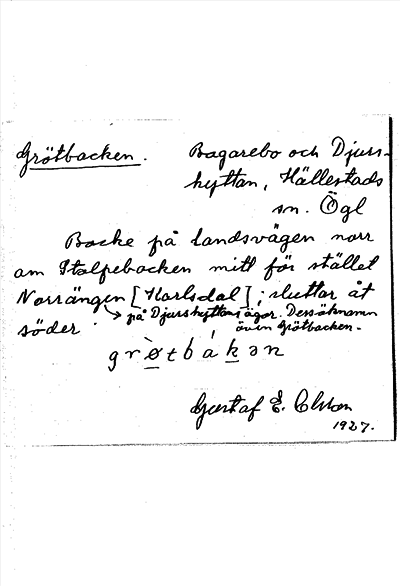 Grötbacken. Bagarebo och Djurs-
hyttan, Hällestads
sn. Ögl
Backe på landsvägen norr
om Stolpebacken mitt för stället
Norrängen [Karlsdal]; sluttar åt
på Djurshyttans ägor. Dess öknamn
söder. även Grötbacken.
grø̀tbákən
Gustaf E. Olsson
1927.